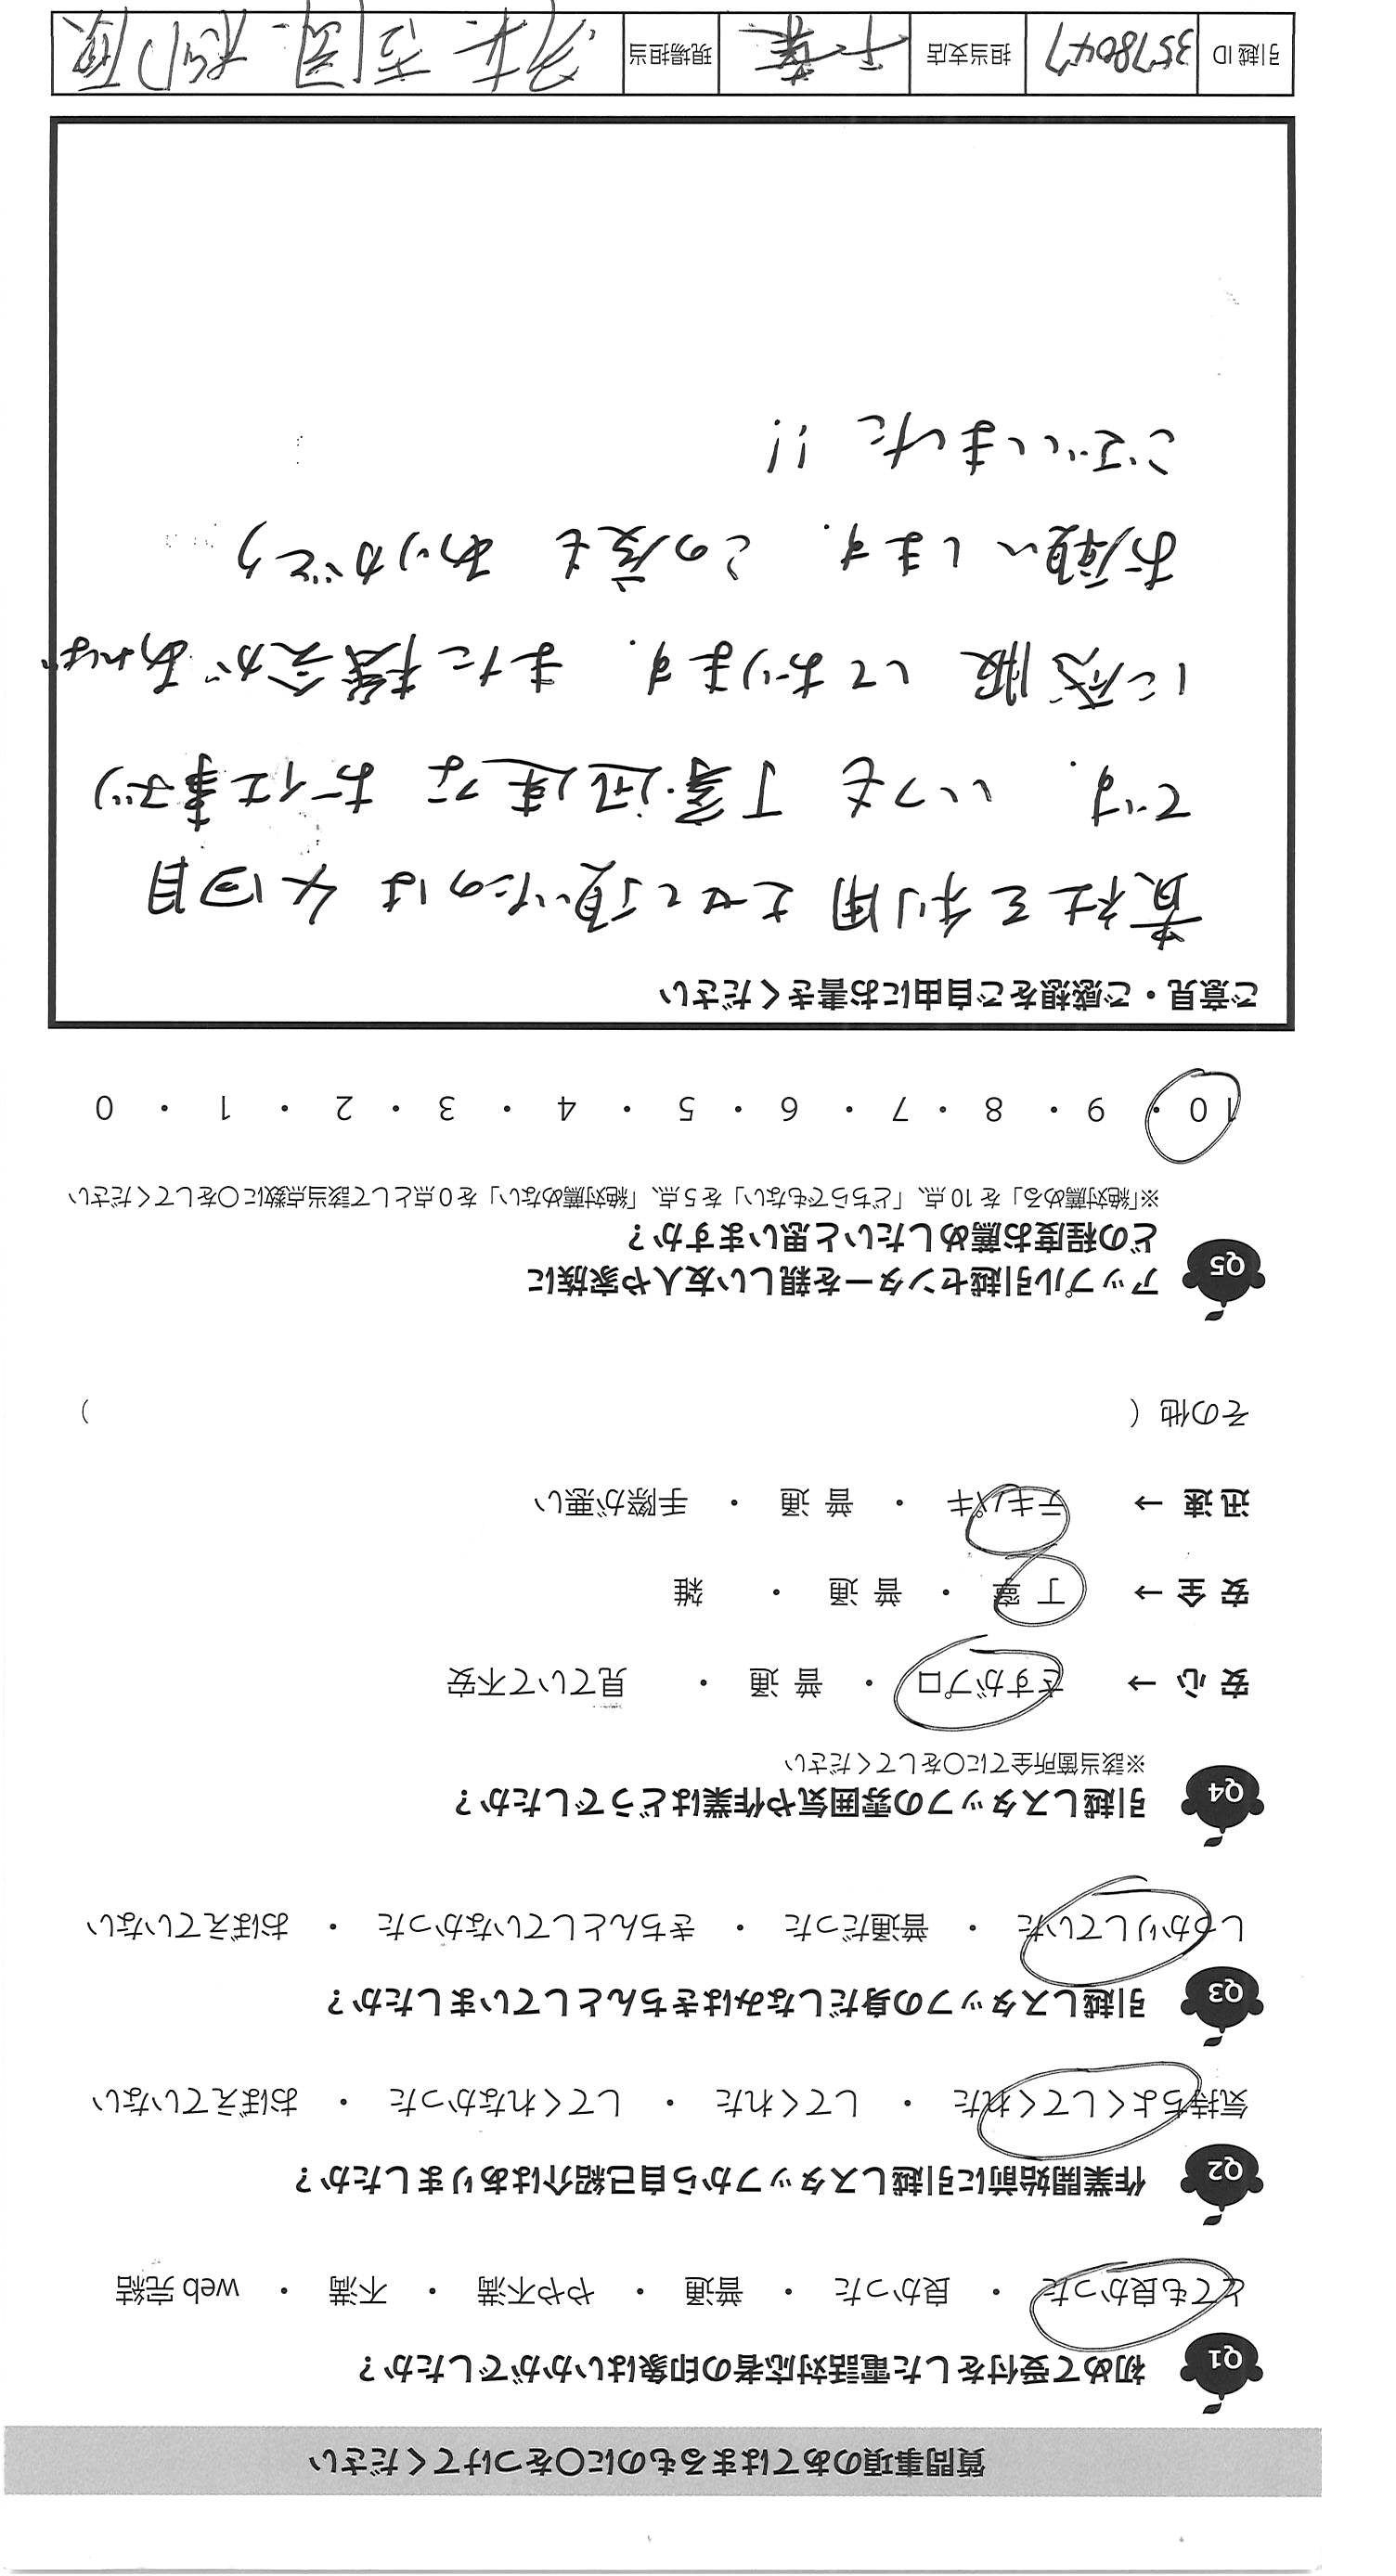 質問事項のあてはまるものに〇をつけてください
Q1 初めて受付をした電話対応者の印象はいかがでしたか？
とても良かった ・ 良かった ・ 普通 ・ やや不満 ・ 不満 ・ web 完結
Q2 作業開始前に引越しスタッフから自己紹介はありましたか？
気持ちよくしてくれた ・ してくれた ・ してくれなかった ・ おぼえていない
Q3 引越しスタッフの身だしなみはきちんとしていましたか？
しっかりしていた ・ 普通だった ・ きちんとしていなかった ・ おぼえていない
Q4 引越しスタッフの雰囲気や作業はどうでしたか？
※該当箇所全てに〇をしてください
安 心 → さすがプロ ・ 普 通 ・ 見ていて不安
安 全 → 丁 寧 ・ 普 通 ・ 雑
迅 速 → テキパキ ・ 普 通 ・ 手際が悪い
その他 （ ）
Q5 アップル引越センターを親しい友人や家族に
どの程度お薦めしたいと思いますか？
※「絶対薦める」を 10 点、「どちらでもない」を 5 点、「絶対薦めない」を 0 点として該当点数に〇をしてください
10 ・ 9 ・ 8 ・ 7 ・ 6 ・ 5 ・ 4 ・ 3 ・ 2 ・ 1 ・ 0
ご意見・ご感想をご自由にお書きください
貴社を利用させて頂いたのは 4回目
です. いつも 丁寧.迅速な お仕事ブリ
に感服 しております. また機会が あれば
お願いします. この度も ありがとう
ございました !!
引越 ID 3578047 担当支店 千葉 現場担当